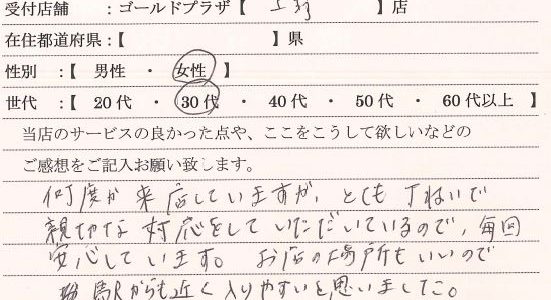 受付店舗 :ゴールドプラザ【 上野 】店
在住都道府県:【 】県
性別 :【 男性 ・ 女性 】
世代 :【 20代 ・ 30代 ・ 40代 ・ 50代 ・ 60代以上 】
当店のサービスの良かった点や、ここをこうして欲しいなどの
ご感想をご記入お願い致します。
何度か来店していますが、とても丁ねいで
親切な対応をしていただいているので、毎回
安心しています。 お店の場所もいいので
駅からも近く入りやすいと思いました。